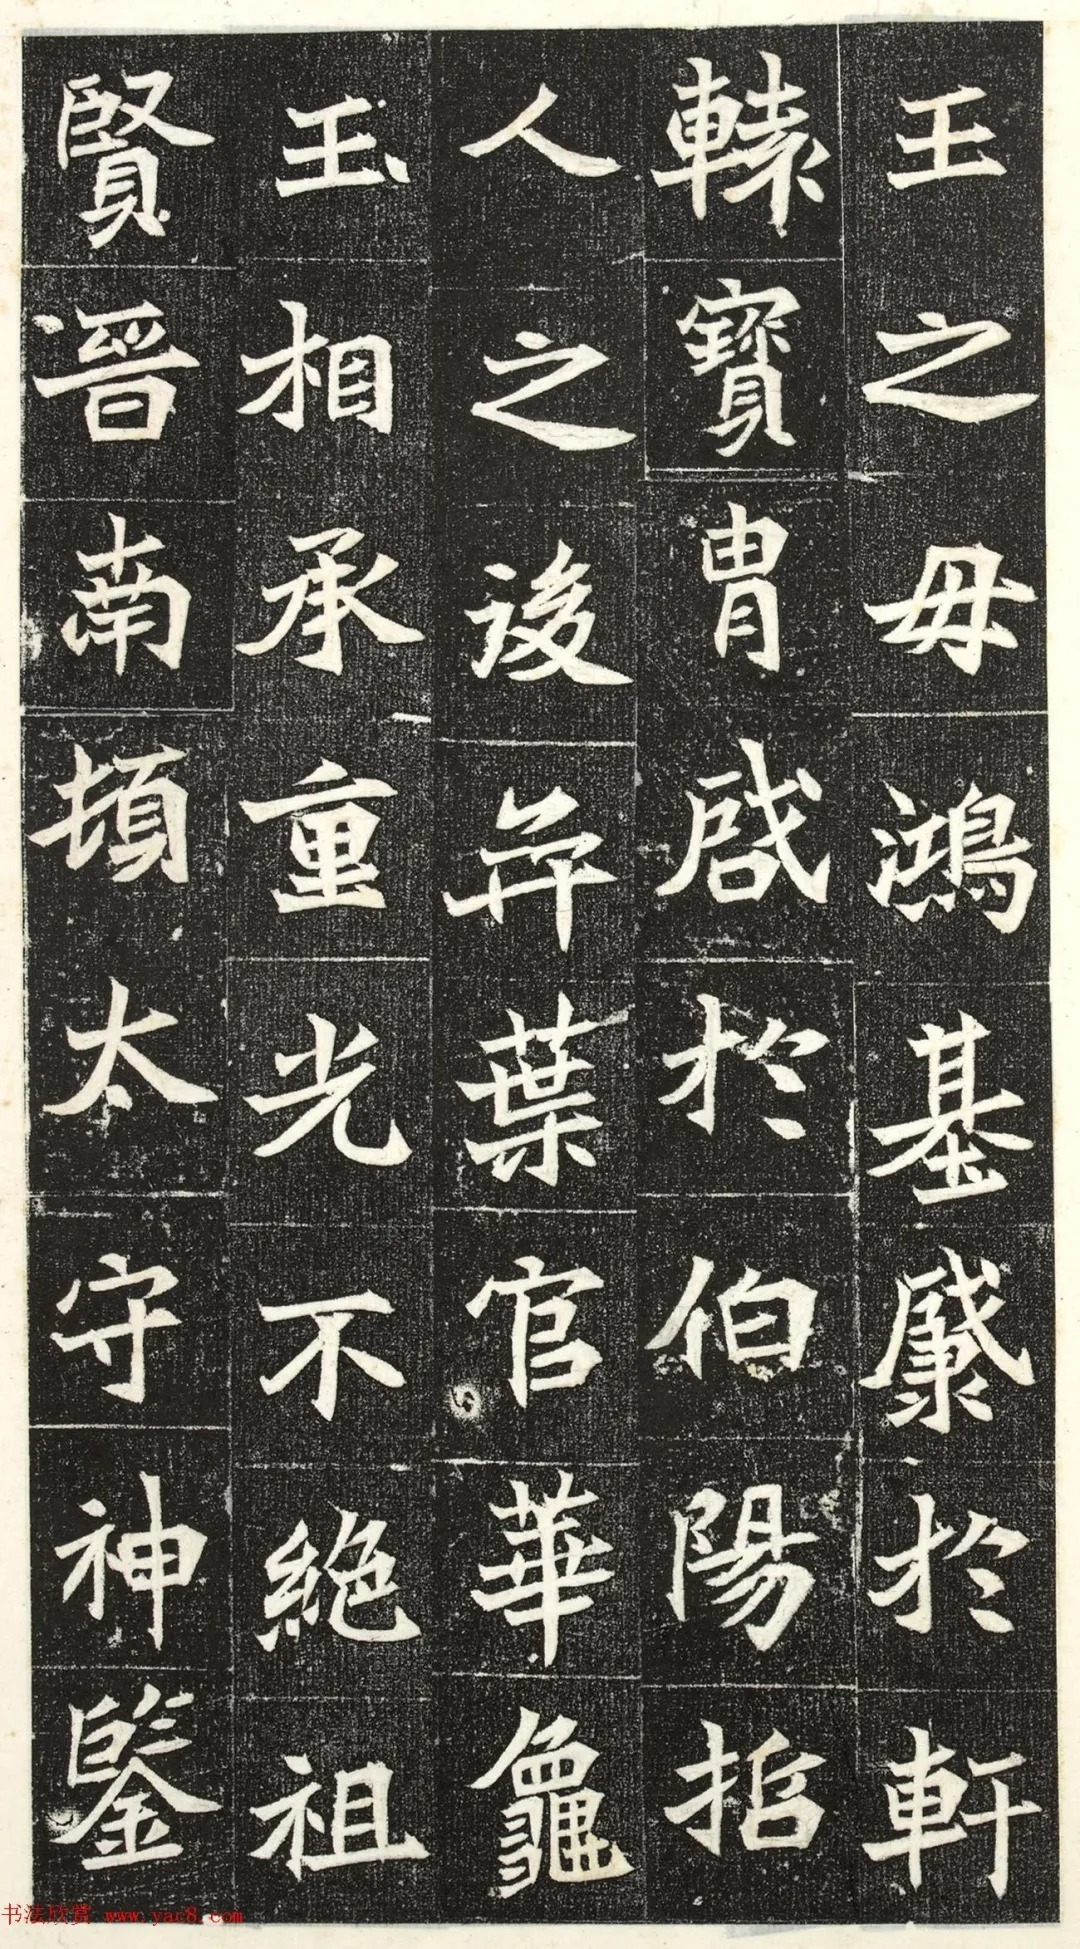 王之母鴻基感於軒
轅寶胄啟於伯陽招
人之後弈葉官華龜
玉相承重光不絕祖
賢晉南頓太守神鑒
书法欣赏 www.yac8.com